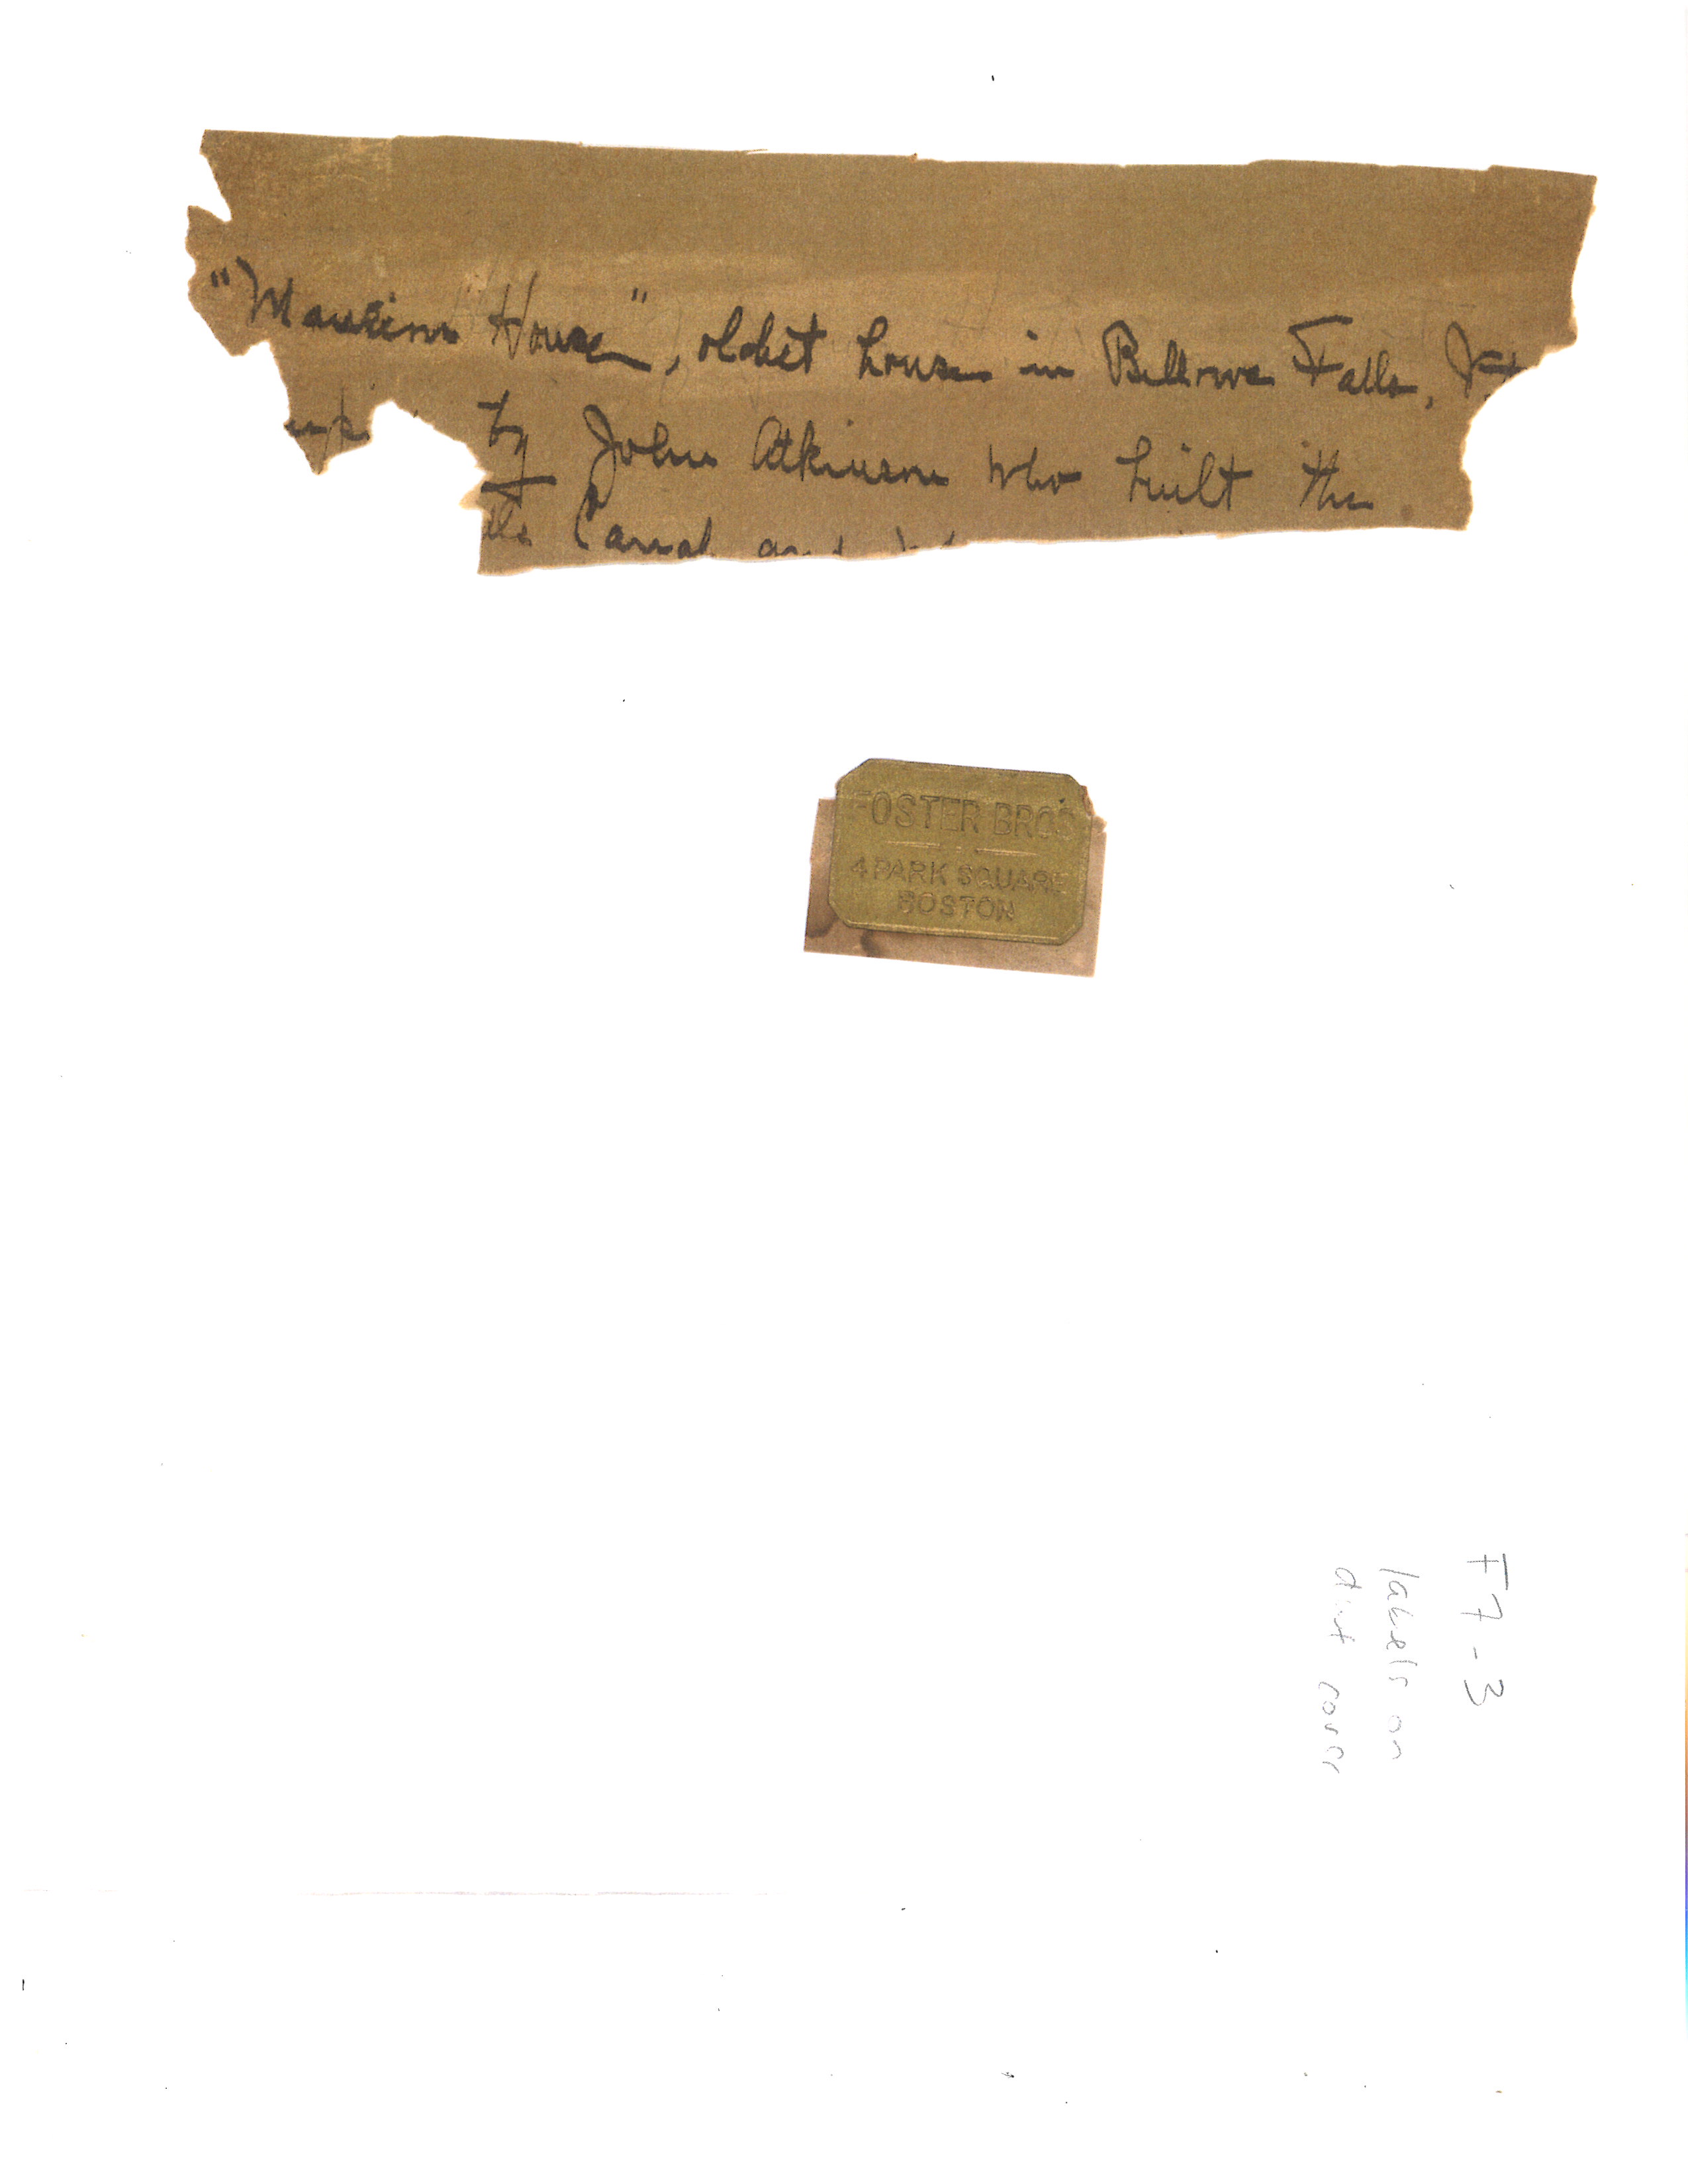 "Mansion House", oldest house in Bellows Falls, Vt
by John Atkinson who built the
Canal and
FOSTER BROS
4 PARK SQUARE
BOSTON
F7-3
labels on
dust cover